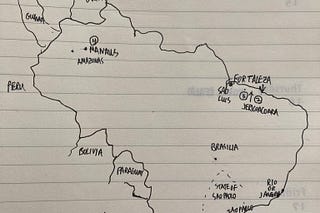 4
MANAUS
AMAZONAS
PERU
FORTALEZA
SAO
LUIS
3
2
JERICOACOARA
BOLIVIA
BRASILIA
PARAGUAY
STATE OF
SAO PAULO
RIO
DE
JANEIRO
SAO PAULO